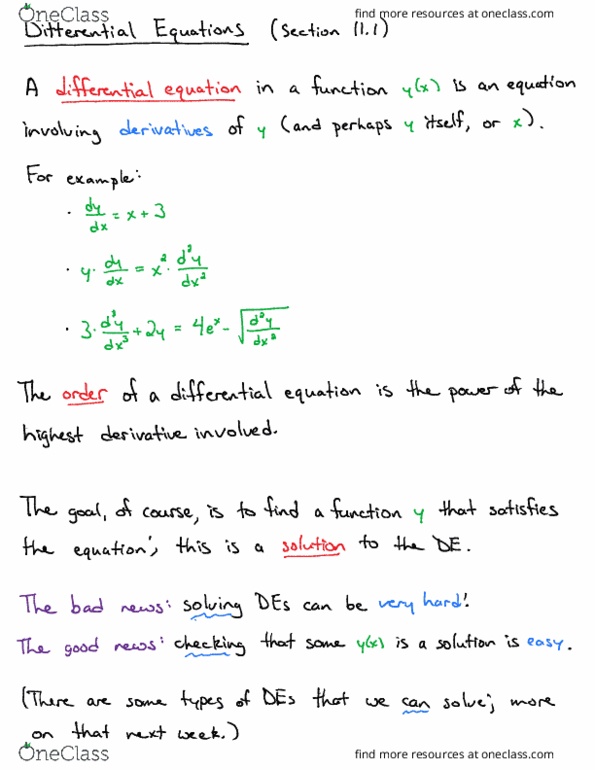 OneClass
find more resources at oneclass.com
Differential Equations (Section 11.1)
A differential equation in a function y(x) is an equation
involving derivatives of y (and perhaps y itself, or x).
For example:
• dy/dx = x + 3
• y · dy/dx = x² · d²y/dx²
• 3 · d³y/dx³ + 2y = 4eˣ - √(d²y/dx²)
The order of a differential equation is the power of the
highest derivative involved.
The goal, of course, is to find a function y that satisfies
the equation; this is a solution to the DE.
The bad news: solving DEs can be very hard!
The good news: checking that some y(x) is a solution is easy.
(There are some types of DEs that we can solve; more
on that next week.)
OneClass
find more resources at oneclass.com